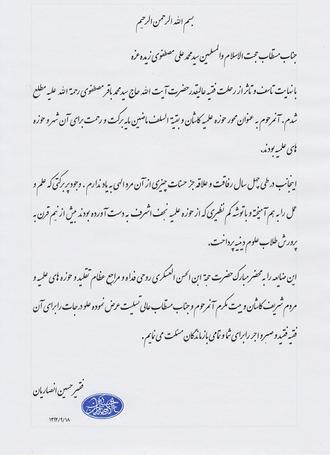 بسم الله الرحمن الرحیم
جناب مستطاب حجت الاسلام والمسلمین سید محمد علی مصطفوی زیده عزه
با نهایت تاسف و تاثر از رحلت فقیه عالیقدر حضرت آیت الله حاج سید محمد باقر مصطفوی رحمة الله علیه مطلع
شدم. آنمرحوم به عنوان محور حوزه علمیه کاشان و بقیة السلف ماضین مایه برکت و رحمت برای آن شهر و حوزه
های علمیه بودند.
اینجانب در طی چهل سال رفاقت و علاقه جز حسنات چیزی از آن مرد الهی به یاد ندارم. وجود پر برکتی که علم و
عمل را به هم آمیخته و با توشه کم نظیری که از حوزه علمیه نجف اشرف به دست آورده بودند بیش از نیم قرن به
پرورش طلاب علوم دینیه پرداخت.
این ضایعه را به محضر مبارک حضرت حجة ابن الحسن العسکری روحی فداه و مراجع عظام تقلید و حوزه های علمیه و
مردم شریف کاشان و بیت مکرم آنمرحوم و جناب مستطاب عالی تسلیت عرض نموده علو درجات را برای آن
فقیه فقید و صبر و اجر را برای شما و تمامی بازماندگان مسئلت می نمایم.
فقیر حسین انصاریان
۱۳۹۲/۹/۱۸